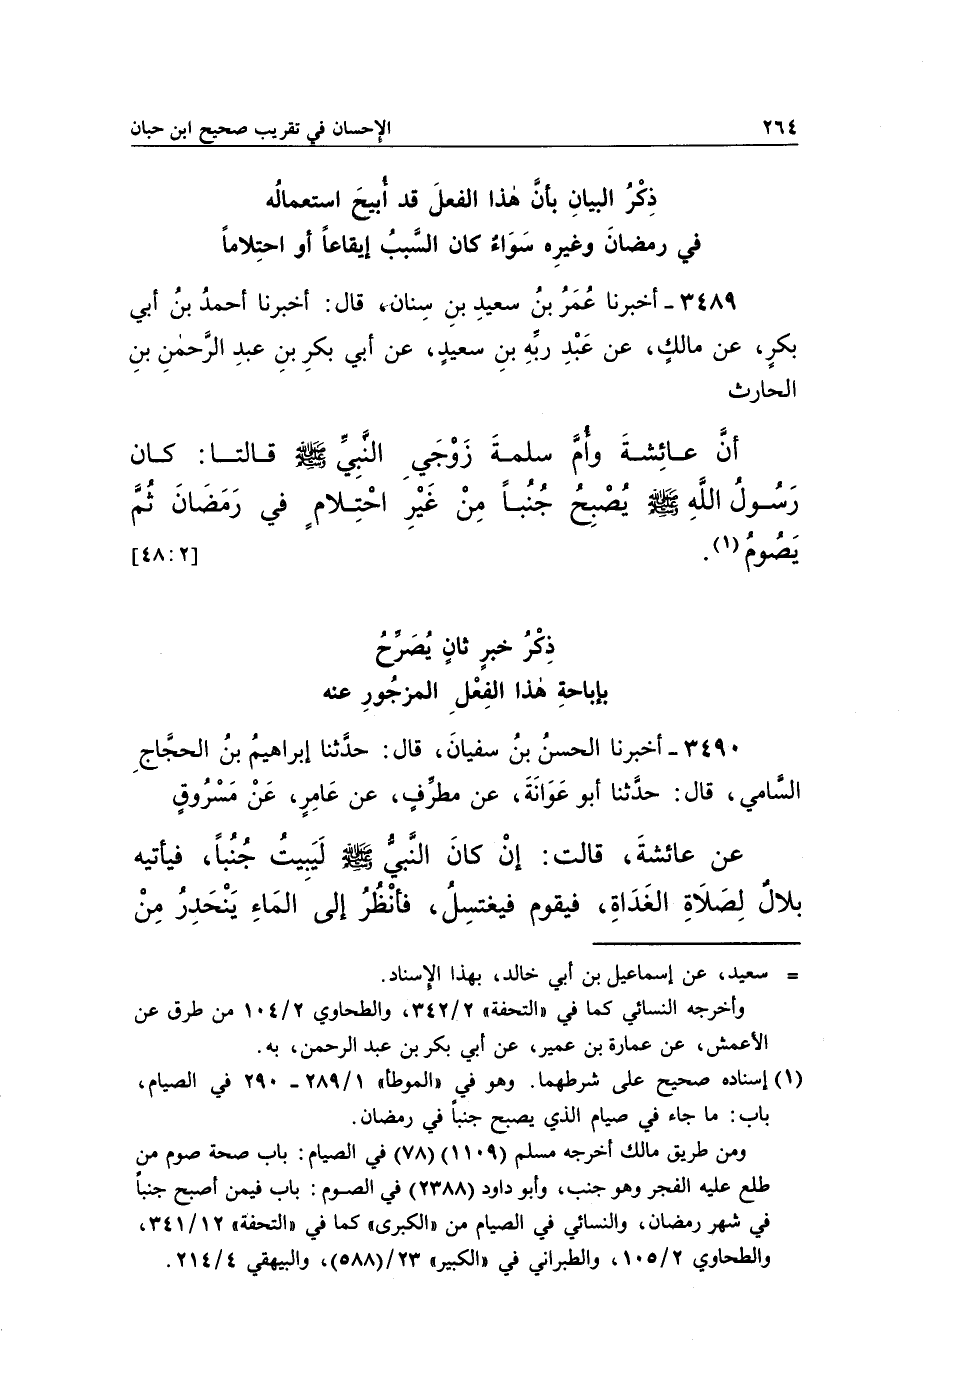 ٢٦٤ الإحسان في تقريب صحيح ابن حبان
ذِكْرُ البيانِ بأنَّ هٰذا الفعلَ قد أُبيحَ استعمالُه
في رمضانَ وغيرِه سَوَاءً كان السَّببُ إيقاعاً أو احتِلاماً
٣٤٨٩ - أخبرنا عُمَرُ بنُ سعيدِ بنِ سِنان، قال: أخبرنا أحمدُ بنُ أبي
بكرٍ، عن مالكٍ، عن عَبْدِ ربِّه بنِ سعيدٍ، عن أبي بكرِ بنِ عبدِ الرَّحمٰنِ بنِ
الحارث
أنَّ عـائِشـةَ وأُمَّ سلمـةَ زَوْجَيِ النَّبِيِّ ﷺ قـالتـا: كـان
رَسُـولُ اللَّهِ ﷺ يُصْبِحُ جُنُبـاً مِنْ غَيْرِ احْتِـلامٍ في رَمَضَانَ ثُمَّ
يَصُومُ(١). [٤٨:٢]
ذِكْرُ خبرٍ ثانٍ يُصَرِّحُ
بإباحةِ هٰذا الفِعْلِ المزجُورِ عنه
٣٤٩٠ - أخبرنا الحسنُ بنُ سفيانَ، قال: حدَّثنا إبراهيمُ بنُ الحجَّاجِ
السَّامي، قال: حدَّثنا أبو عَوَانَةَ، عن مطرِّفٍ، عن عَامِرٍ، عَنْ مَسْرُوقٍ
عن عائشةَ، قالت: إنْ كانَ النَّبيُّ ﷺ لَيَبِيتُ جُنُباً، فيأتيه
بلالٌ لِصَلَاةِ الغَدَاةِ، فيقوم فيغتسِلُ، فأنْظُرُ إلى المَاءِ يَنْحَدِرُ مِنْ
= سعيد، عن إسماعيل بن أبي خالد، بهذا الإسناد.
وأخرجه النسائي كما في «التحفة» ٣٤٢/٢، والطحاوي ١٠٤/٢ من طرق عن
الأعمش، عن عمارة بن عمير، عن أبي بكر بن عبد الرحمن، به.
(١) إسناده صحيح على شرطهما. وهو في «الموطأ» ٢٨٩/١ - ٢٩٠ في الصيام،
باب: ما جاء في صيام الذي يصبح جنباً في رمضان.
ومن طريق مالك أخرجه مسلم (١١٠٩) (٧٨) في الصيام: باب صحة صوم من
طلع عليه الفجر وهو جنب، وأبو داود (٢٣٨٨) في الصـوم: باب فيمن أصبح جنباً
في شهر رمضان، والنسائي في الصيام من «الكبرى» كما في «التحفة» ٣٤١/١٢،
والطحاوي ١٠٥/٢، والطبراني في «الكبير» ٢٣/(٥٨٨)، والبيهقي ٢١٤/٤.